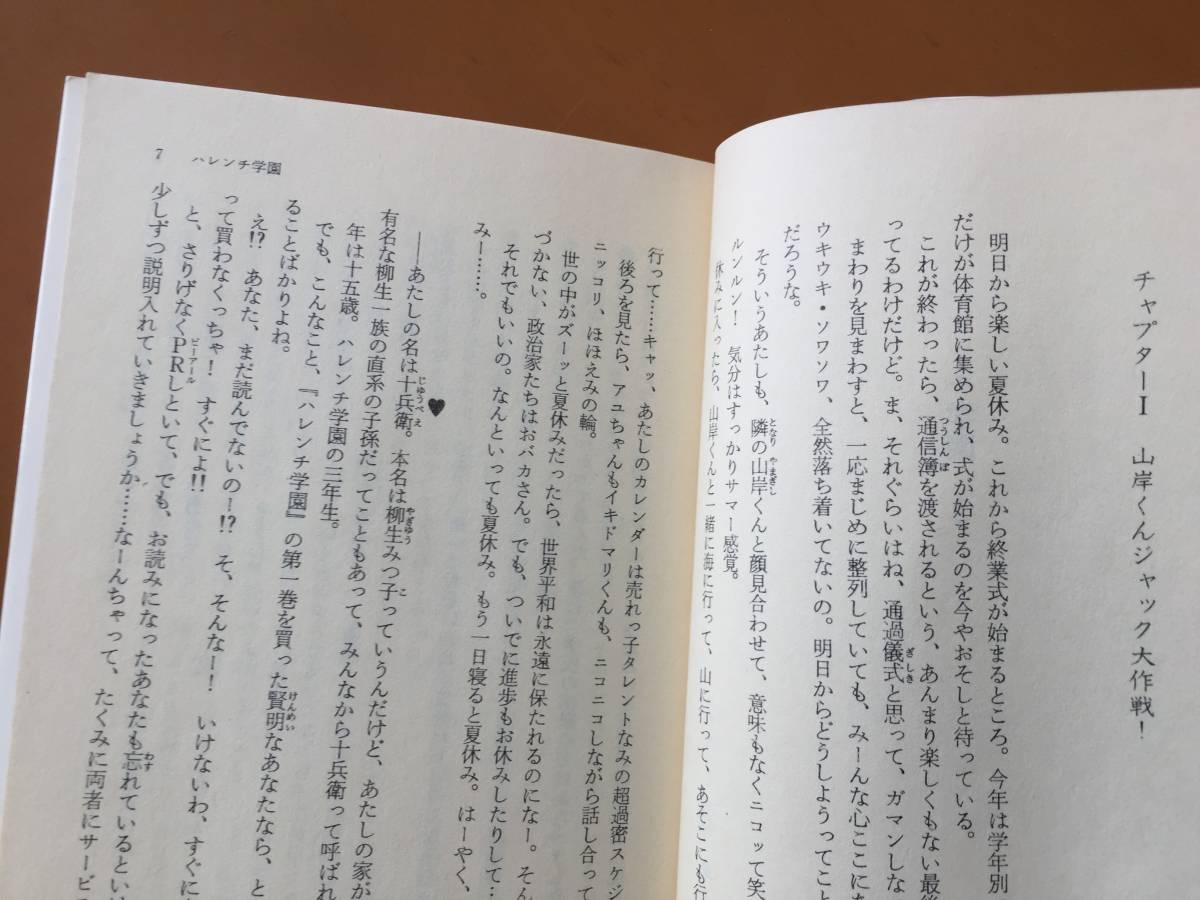 チャプターⅠ　山岸くんジャック大作戦！
明日から楽しい夏休み。これから終業式が始まるところ。今年は学年別
だけが体育館に集められ、式が始まるのを今やおそしと待っている。
これが終わったら、通信簿を渡されるという、あんまり楽しくもない最後
ってるわけだけど。ま、それぐらいはね、通過儀式と思って、ガマンしな
まわりを見まわすと、一応まじめに整列していても、みーんな心ここにあ
ウキウキ・ソワソワ、全然落ち着いてないの。明日からどうしようってこと
だろうな。
そういうあたしも、隣の山岸くんと顔見合わせて、意味もなくニコッて笑
ルンルン！　気分はすっかりサマー感覚。
休みに入ったら、山岸くんと一緒に海に行って、山に行って、あそこにも行
行って……キャッ、あたしのカレンダーは売れっ子タレントなみの超過密スケジ
後ろを見たら、アユちゃんもイキドマリくんも、ニコニコしながら話し合って
ニッコリ、ほほえみの輪。
世の中がズーッと夏休みだったら、世界平和は永遠に保たれるのになー。そん
づかない、政治家たちはおバカさん。でも、ついでに進歩もお休みしたりして…
それでもいいの。なんといっても夏休み。もう一日寝ると夏休み。はーやく、
みー……。
♥
――あたしの名は十兵衛。本名は柳生みつ子っていうんだけど、あたしの家が
有名な柳生一族の直系の子孫だってこともあって、みんなから十兵衛って呼ばれ
年は十五歳。ハレンチ学園の三年生。
でも、こんなこと、『ハレンチ学園』の第一巻を買った賢明なあなたなら、と
ることばかりよね。
え!?　あなた、まだ読んでないのー!?　そ、そんなー！　いけないわ、すぐに
って買わなくっちゃ！　すぐによ!!
と、さりげなくPRしといて、でも、お読みになったあなたも忘れているとい
少しずつ説明入れていきましょうか……なーんちゃって、たくみに両者にサービ
7　ハレンチ学園